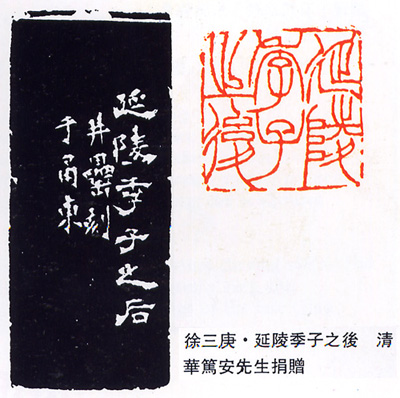 延陵季子之后
井罍刻
于甬東
延陵
季子
之後
徐三庚·延陵季子之後　清
華篤安先生捐贈